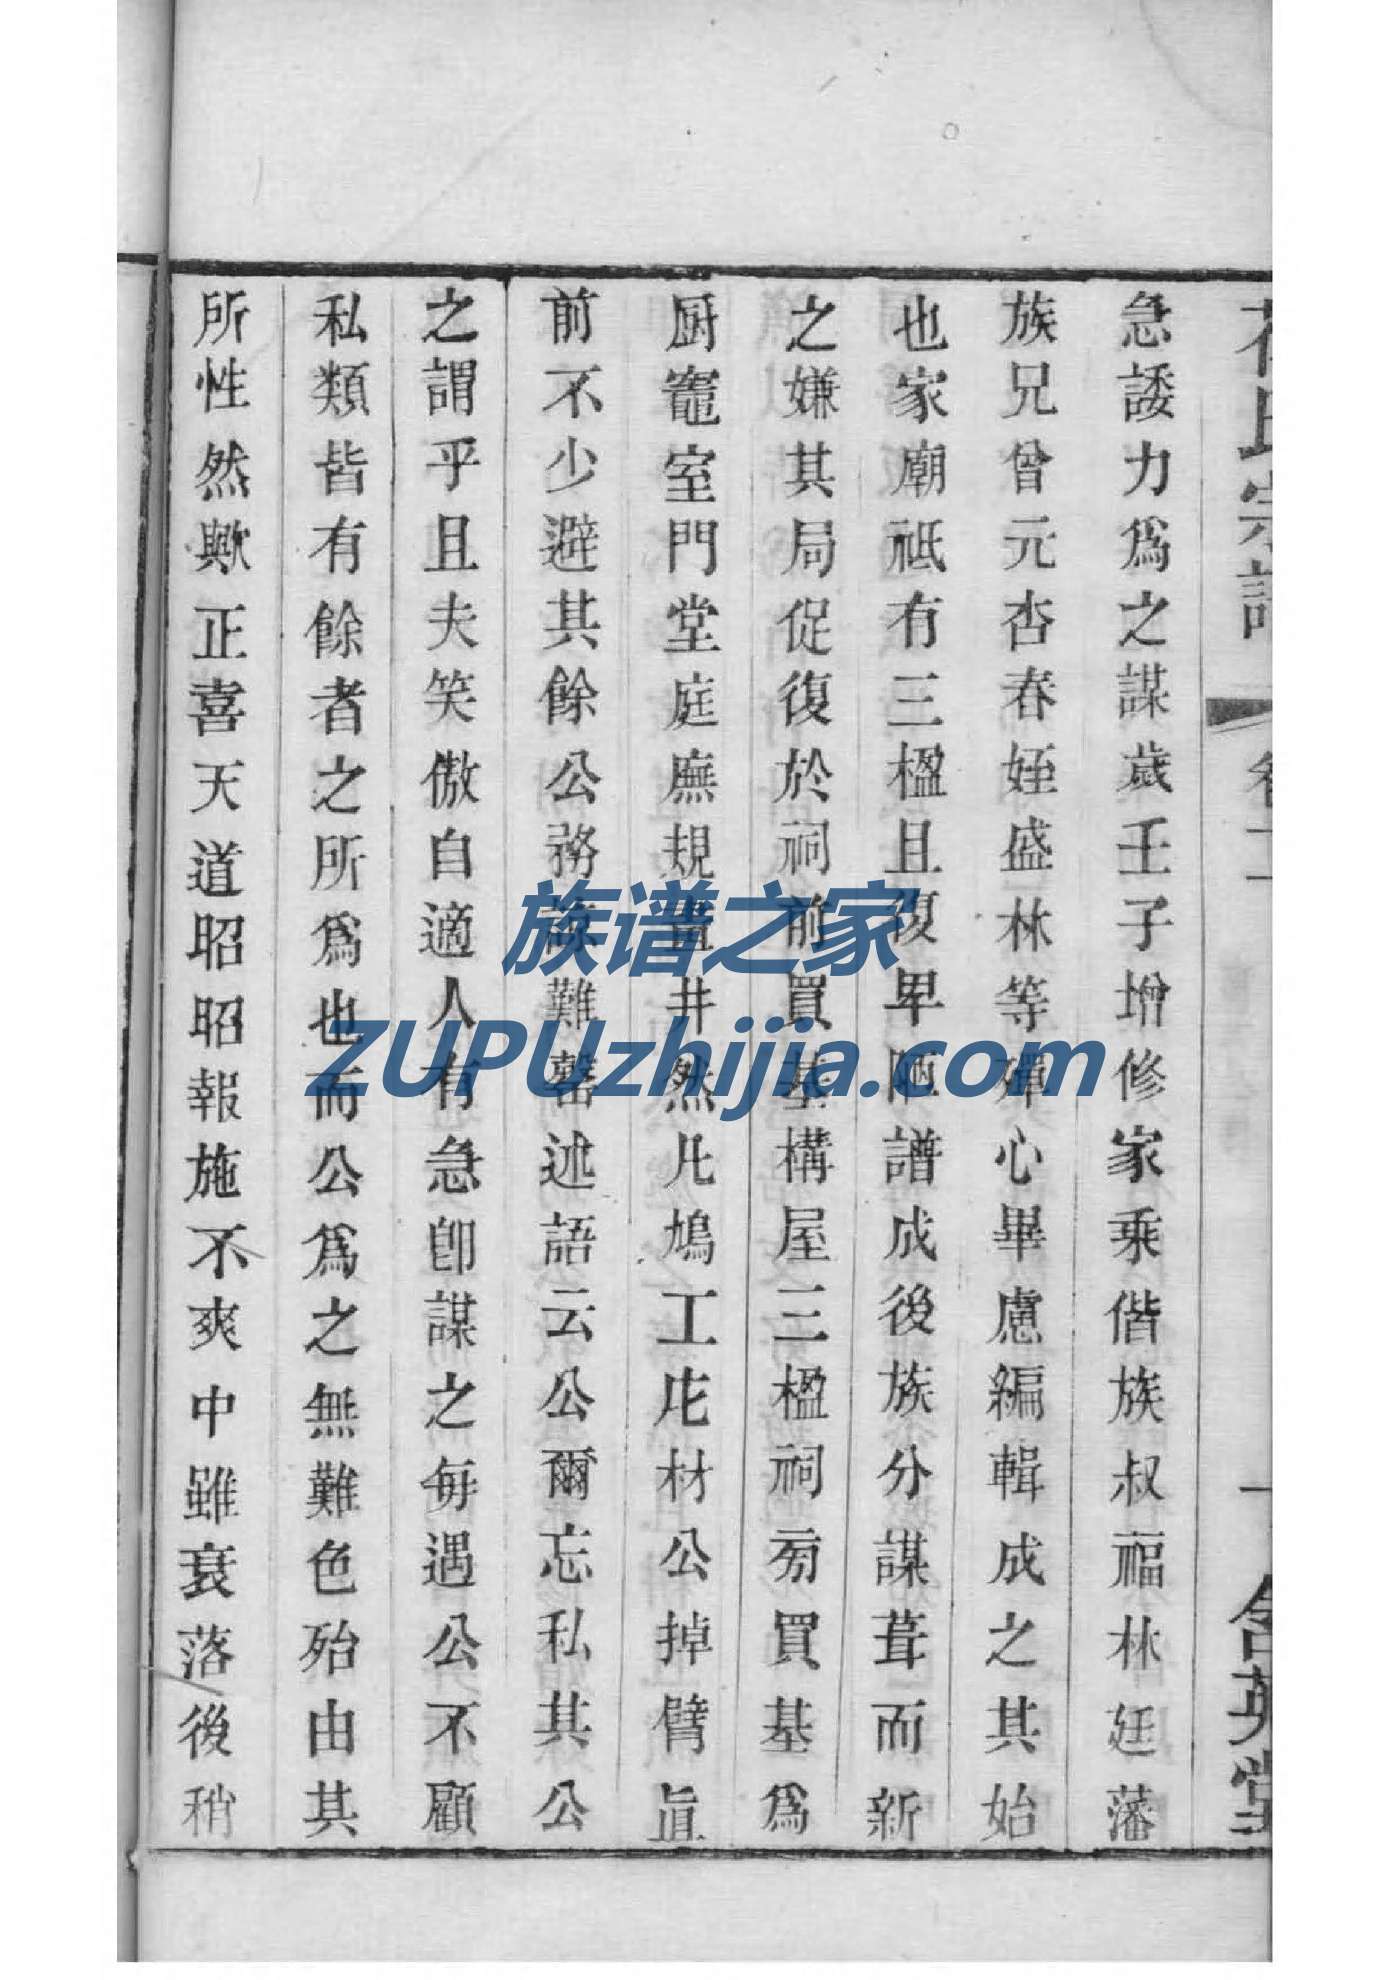 急諉力爲之謀歲壬子增修家乘偕族叔福林廷藩
族兄曾元杏春姪盛林等殫心畢慮編輯成之其始
也家廟祗有三楹且復卑陋譜成後族分謀葺而新
之嫌其局促復於祠前買基構屋三楹祠旁買基爲
厨竈室門堂庭廡規畫井然凡鳩工庀材公掉臂直
前不少避其餘公務諒難罄述語云公爾忘私其公
之謂乎且夫笑傲自適人有急卽謀之每遇公不顧
私類皆有餘者之所爲也而公爲之無難色殆由其
所性然歟正喜天道昭昭報施不爽中雖衰落後稍
氏宗譜
卷二
含英堂
族谱之家
ZUPUzhijia.com